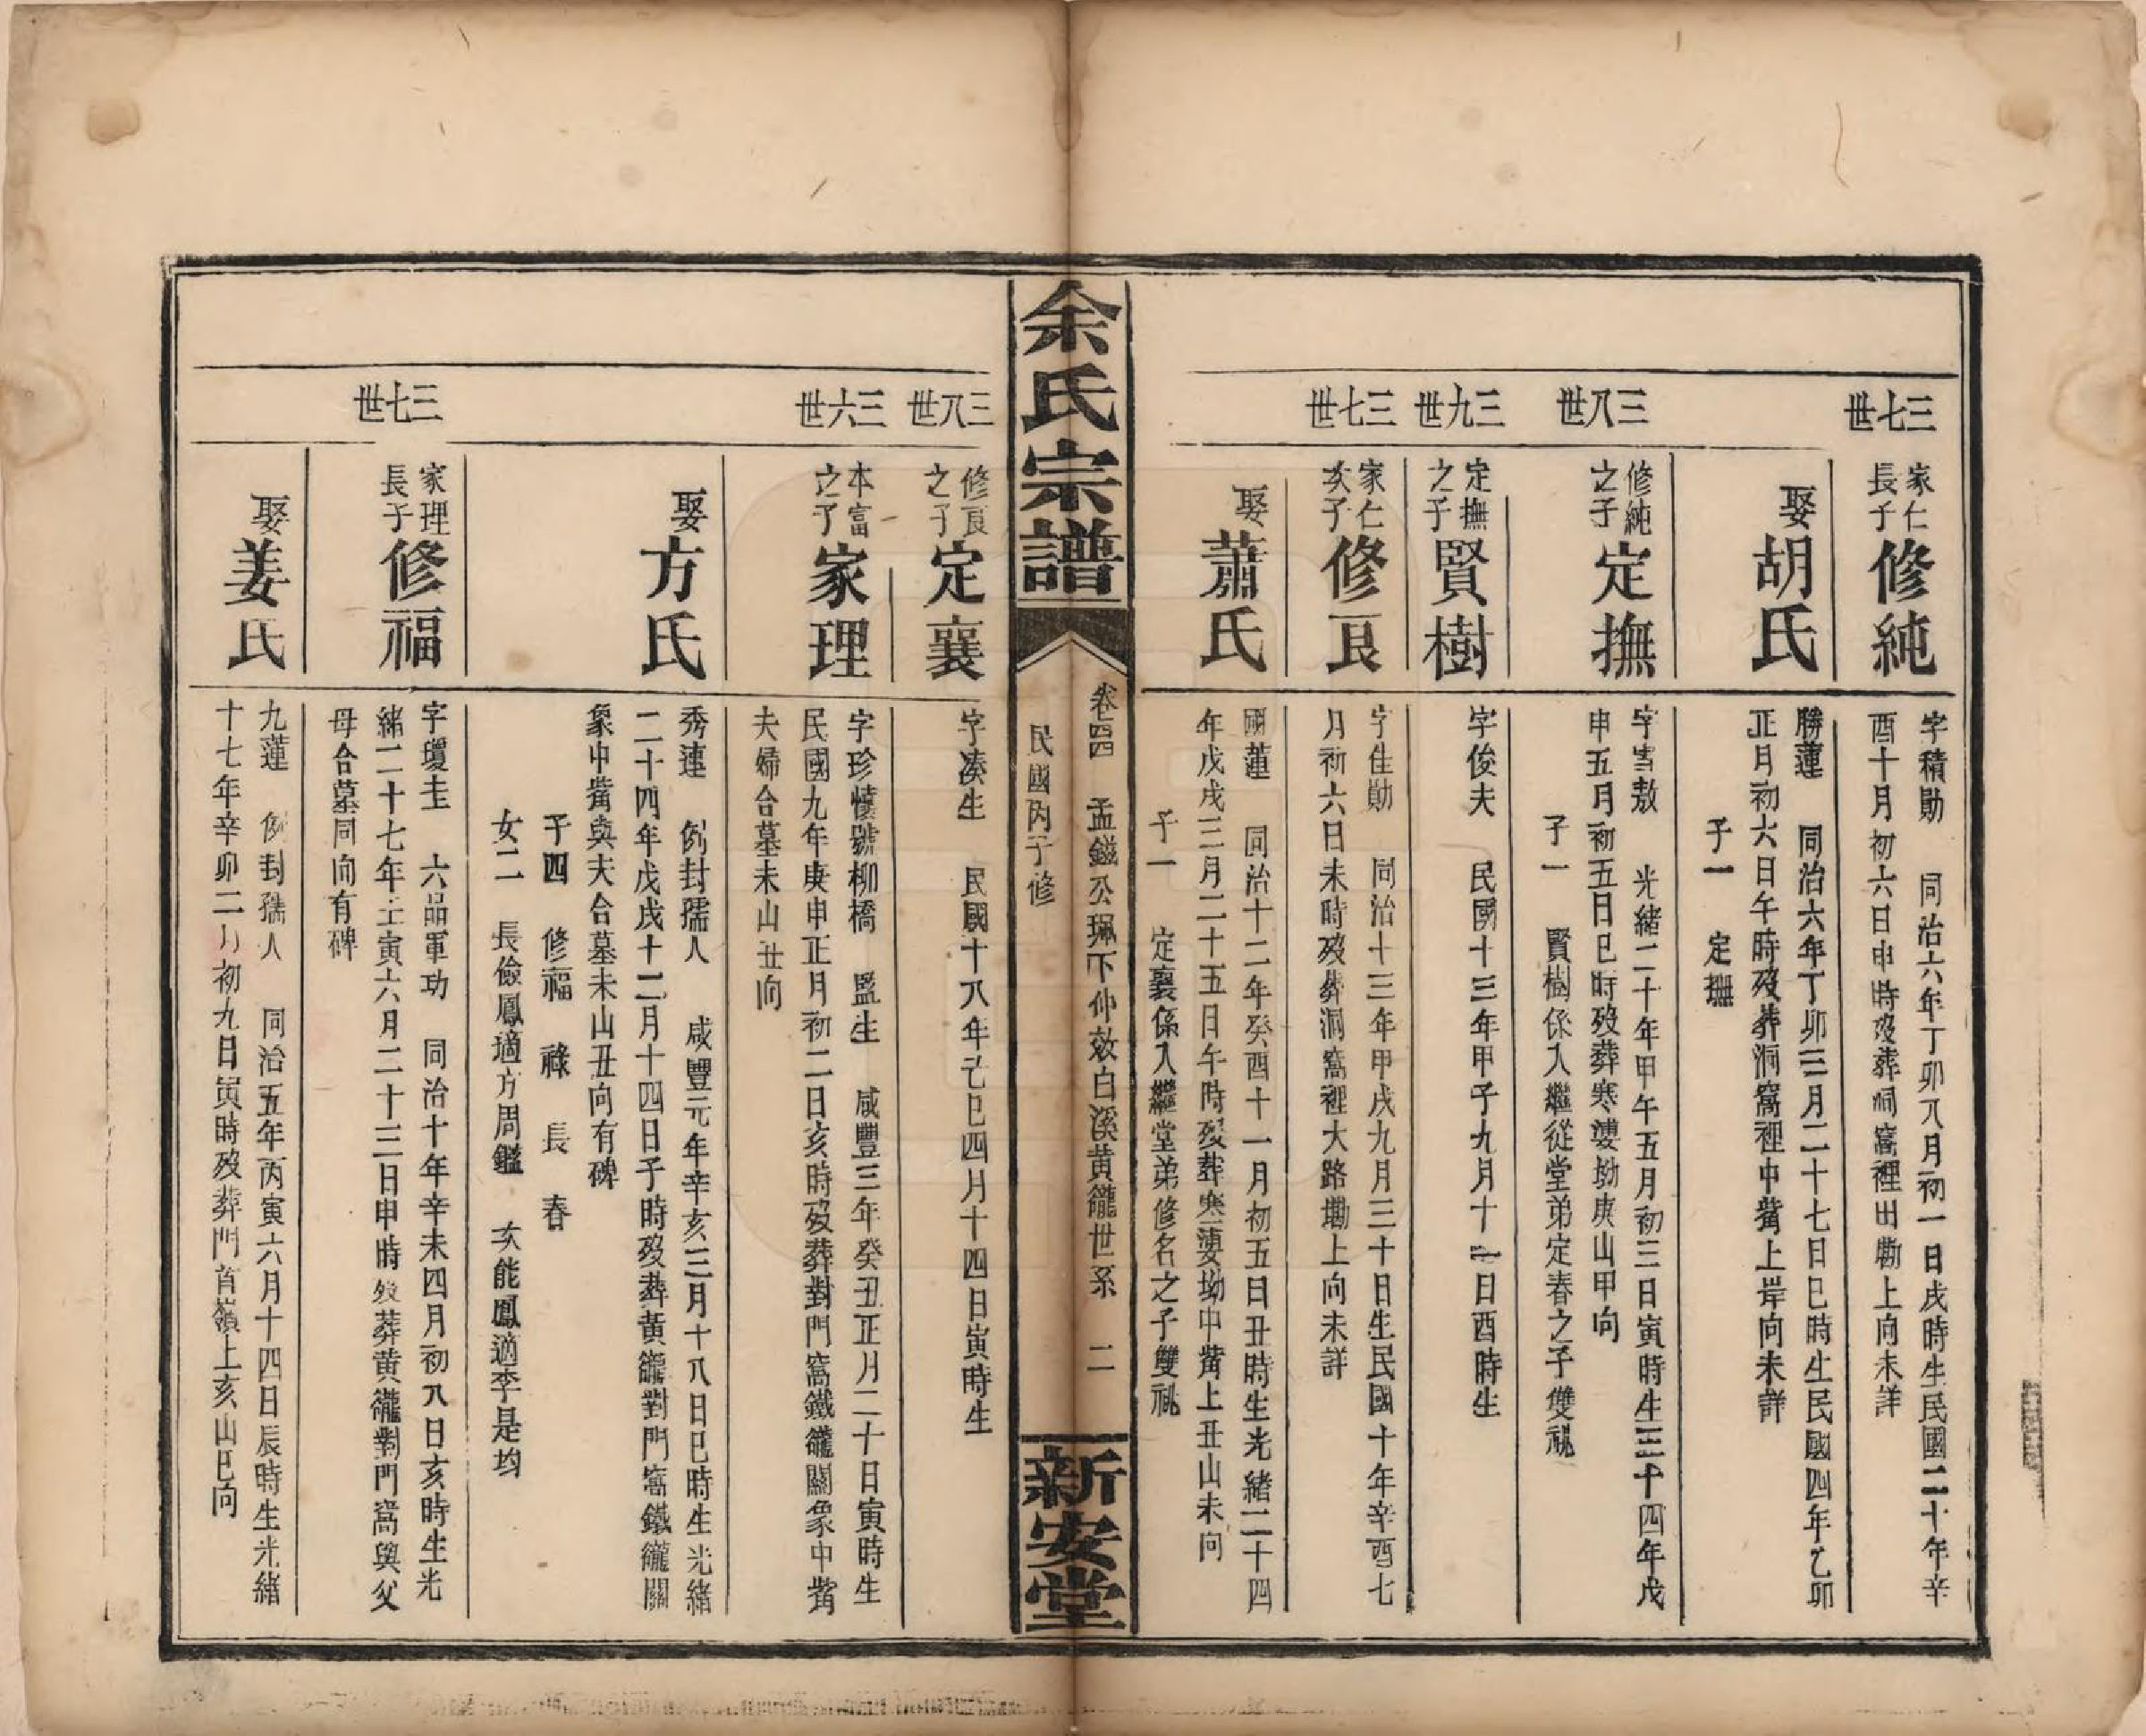 三七世
家仁
長子
修純
字積勛　同治六年丁卯八月初一日戌時生民國二十年辛
酉十月初六日申時歿葬洞窩裡田勘上向未詳
娶
胡氏
勝蓮　同治六年丁卯三月二十七日巳時生民國四年乙卯
正月初六日午時歿葬洞窩裡中嘴上岸向未詳
子一　定撫
三八世
修純
之子
定撫
字雪敖　光緒二十年甲午五月初三日寅時生三十四年戊
申五月初五日巳時歿葬寒婆坳庚山甲向
子一　賢樹係入繼從堂弟定春之子雙祧
三九世
定撫
之子
賢樹
字俊夫　民國十三年甲子九月十一日酉時生
三七世
家仁
次子
修良
字佳勛　同治十三年甲戌九月三十日生民國十年辛酉七
月初六日未時歿葬洞窩裡大路墈上向未詳
娶
蕭氏
國蓮　同治十二年癸酉十一月初五日丑時生光緒二十四
年戊戌三月二十五日午時歿葬寒婆坳中嘴上丑山未向
子一　定襄係入繼堂弟修名之子雙祧
余氏宗譜
卷四　孟鎡公珮下仲效白溪黃籠世系　二
民國丙子修
新安堂
三八世
修良
之子
定襄
字湊生　民國十八年己巳四月十四日寅時生
三六世
本富
之子
家理
字珍懷號柳橋　監生　咸豐三年癸丑正月二十日寅時生
民國九年庚申正月初二日亥時歿葬對門窩鐵籠關象中嘴
夫婦合墓未山丑向
娶
方氏
秀連　例封孺人　咸豐元年辛亥三月十八日巳時生光緒
二十四年戊戌十二月十四日子時歿葬黃籠對門窩鐵籠關
象中嘴與夫合墓未山丑向有碑
子四　修福　祿　長　春
女二　長儉鳳適方周鑑　次能鳳適李是均
三七世
家理
長子
修福
字瓊圭　六品軍功　同治十年辛未四月初八日亥時生光
緒二十七年壬寅六月二十三日申時歿葬黃籠對門窩與父
母合墓同向有碑
娶
姜氏
九蓮　例封孺人　同治五年丙寅六月十四日辰時生光緒
十七年辛卯二月初九日寅時歿葬門首嶺上亥山巳向